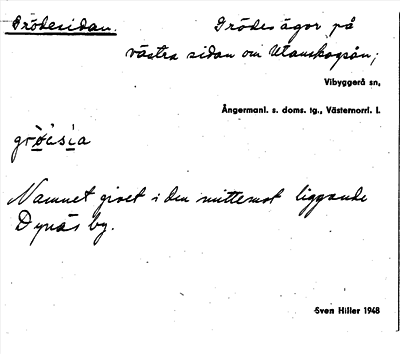 Grödesidan. Grödes ägor på
västra sidan om Utanskogsån;
Vibyggerå sn,
Ångermanl. s. doms. tg., Västernorrl. l.
Namnet givet i den mittemot liggande
Dynäs by.
Sven Hiller 1948